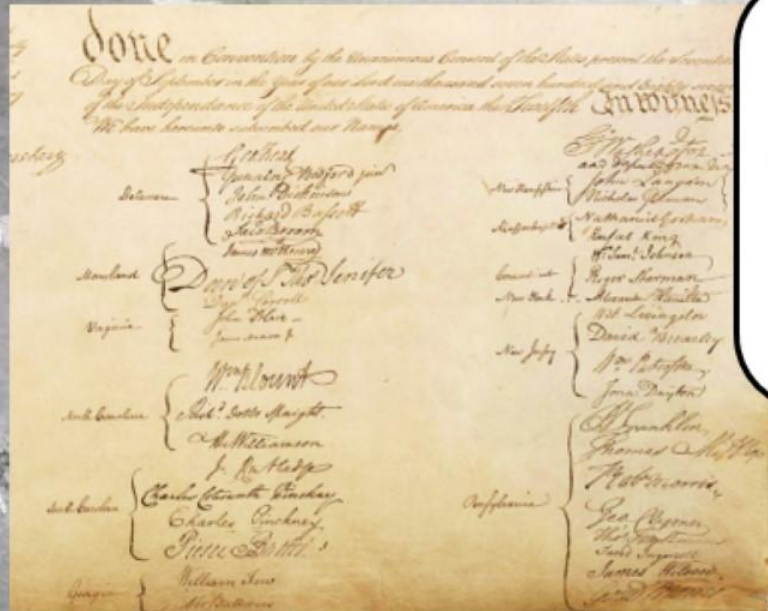 done in Convention by the Unanimous Consent of the States present the Seventeenth
Day of September in the Year of our Lord one thousand seven hundred and Eighty seven
of the Independance of the United States of America the Twelfth In Witness
We have hereunto subscribed our Names,
Delaware
Geo: Read
Gunning Bedford jun
John Dickinson
Richard Bassett
Jaco: Broom
Maryland
James McHenry
Dan of St Thos Jenifer
Danl Carroll
Virginia
John Blair
North Carolina
Wm Blount
Richd Dobbs Spaight.
Hu Williamson
South Carolina
J. Rutledge
Charles Cotesworth Pinckney
Charles Pinckney
Pierce Butler.
Georgia
William Few
Abr Baldwin
Go Washington
and deputy from
New Hampshire
John Langdon
Nicholas Gilman
Massachusetts
Nathaniel Gorham
Rufus King
Connecticut
Wm Saml Johnson
Roger Sherman
New York
Alexander Hamilton
New Jersey
Wil Livingston
David Brearley
Wm Paterson
Jona Dayton
Pensylvania
B Franklin
Thomas Mifflin
Robt Morris
Geo Clymer
Jared Ingersoll
James Wilson